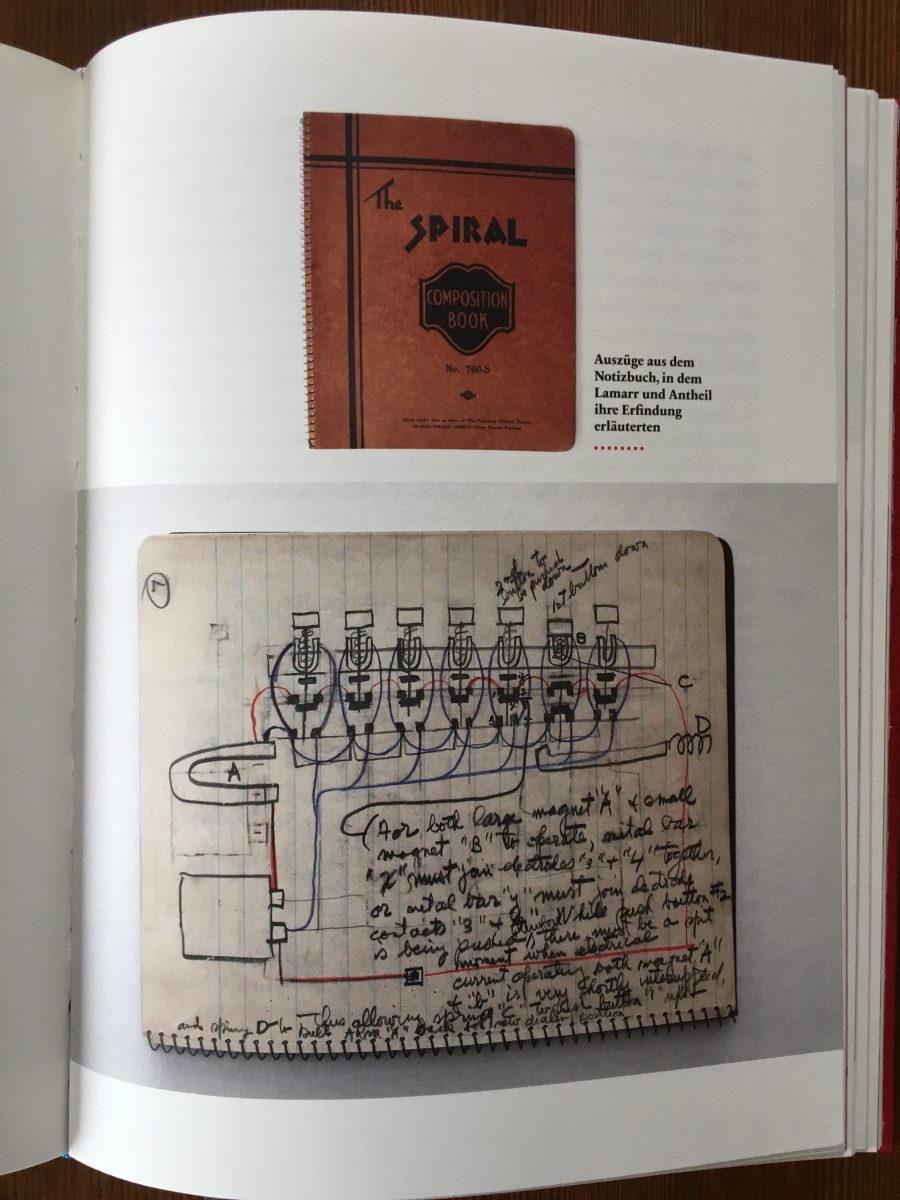 The
SPIRAL
COMPOSITION
BOOK
No. 760-S
Auszüge aus dem
Notizbuch, in dem
Lamarr und Antheil
ihre Erfindung
erläuterten
2nd
button to
be pushed
down
1st button down.
1
B
C
D
A
(For both large magnet "A" & small
magnet "B" to operate, metal bar
"X" must join electrodes "3" + "4" together,
or metal bar "y" must join electrode
contacts "3" &
is being pushed, there must be a split
While push button #2
moment when electrical
current operating both magnet "A"
& "b" is very shortly interrupted,
Thus allowing spring "C" to push button "1" up
and spring D to pull Arm back to new dialing position